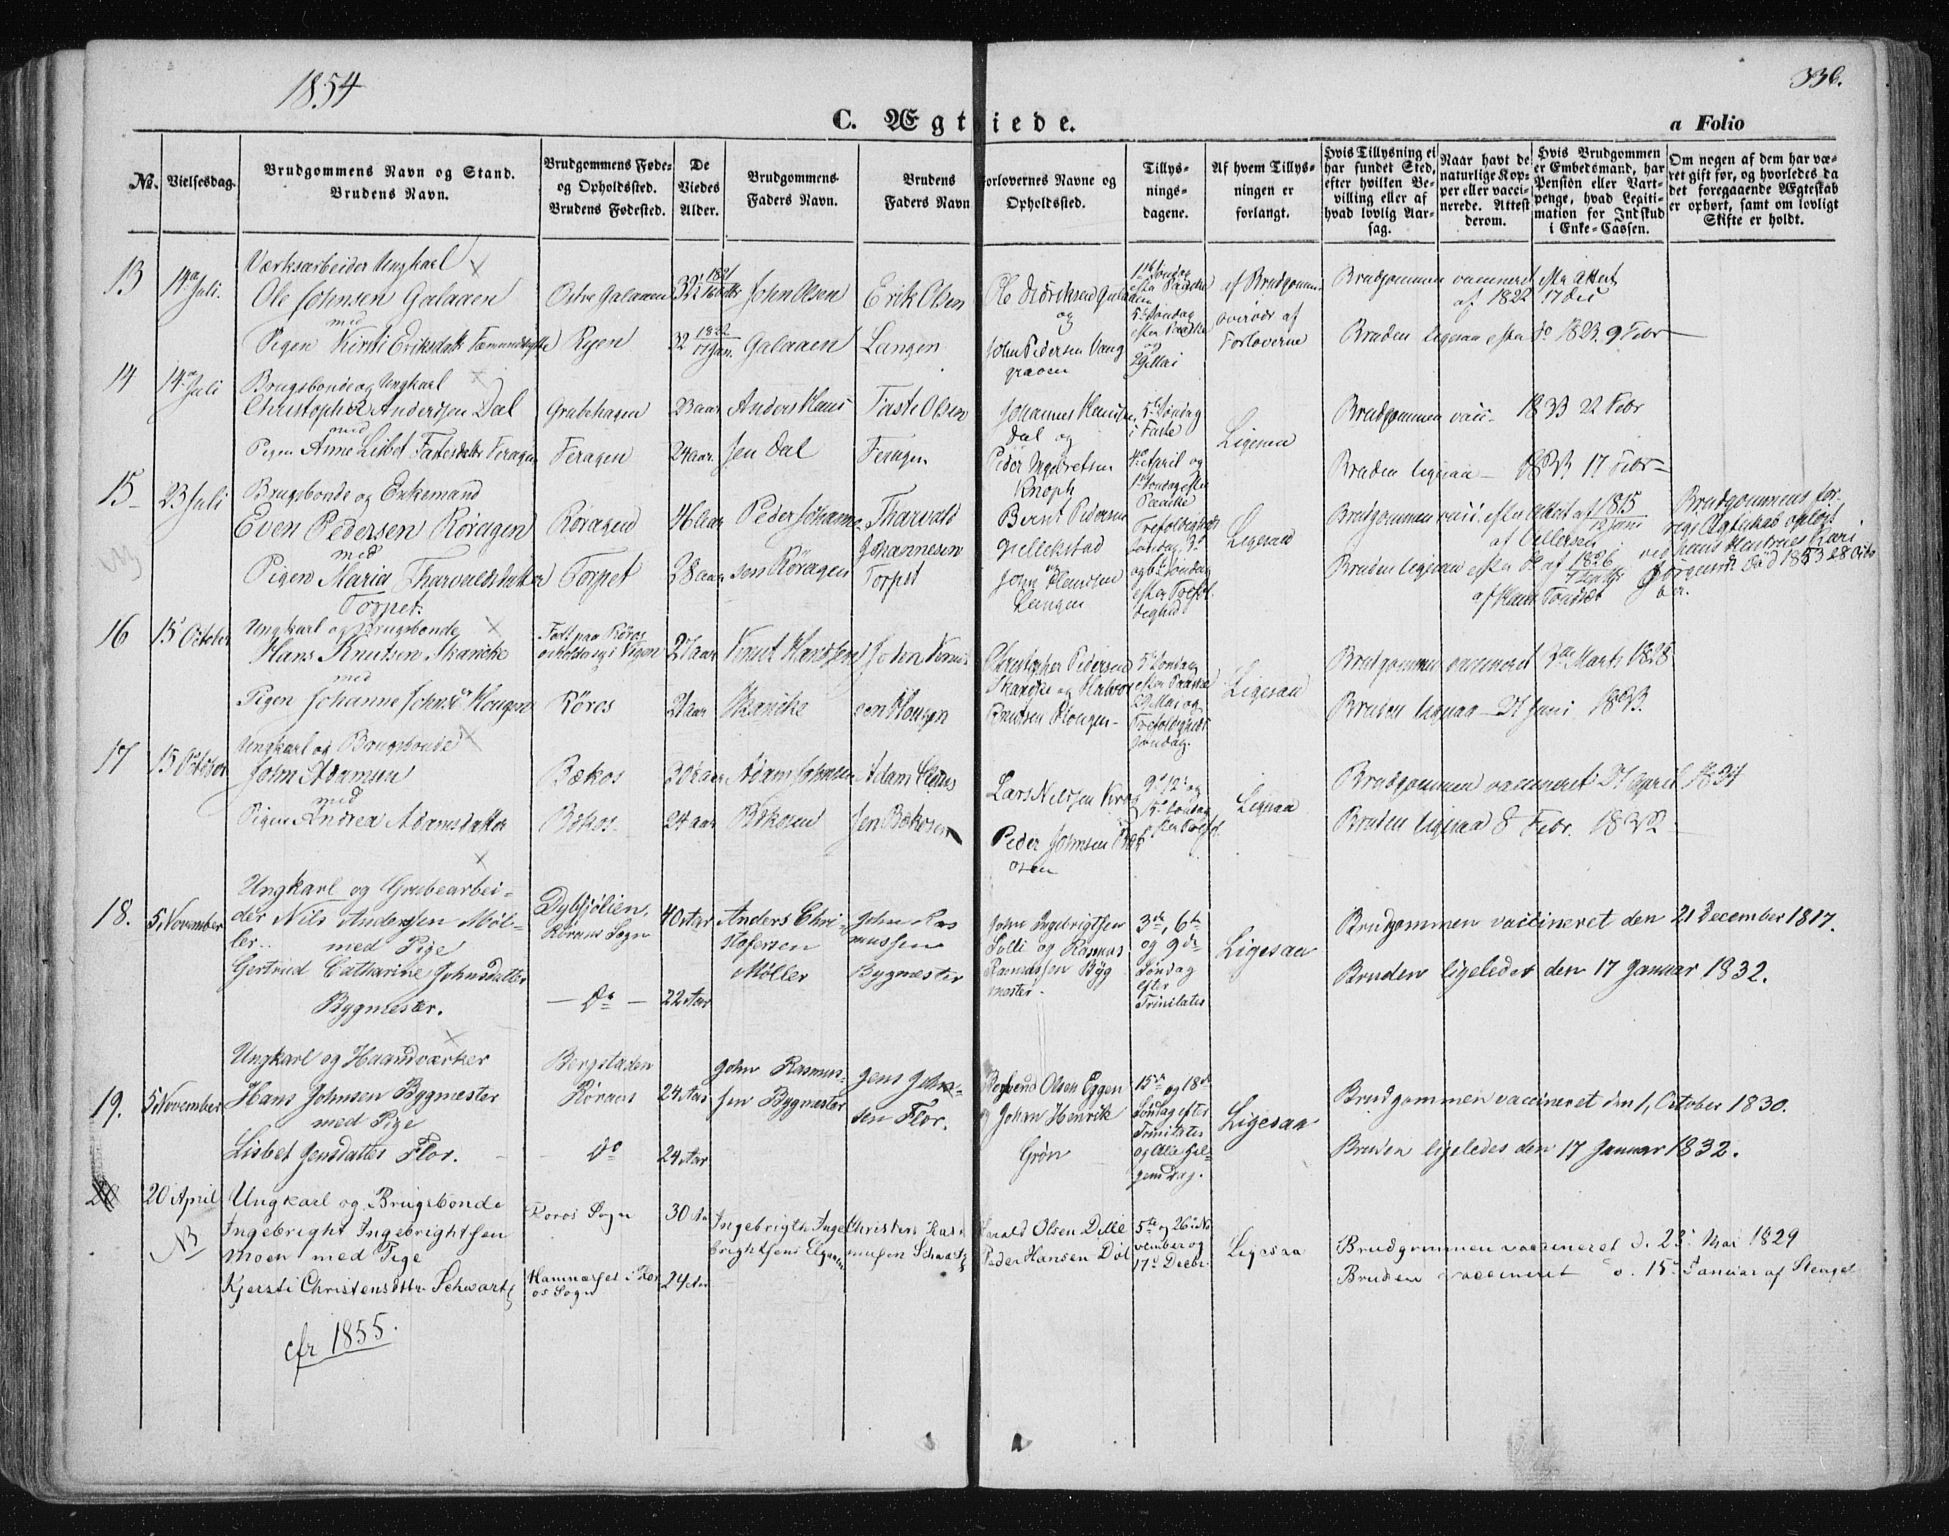 1854
336.
C. Ægteviede.
a Folio
No.
Vielsesdag.
Brudgommens Navn og Stand.
Brudens Navn.
Brudgommens Føde-
og Opholdssted.
Brudens Fødested.
De
Viedes
Alder.
Brudgommens
Faders Navn.
Brudens
Faders Navn
Forlovernes Navne og
Opholdssted.
Tillys-
nings-
dagene.
Af hvem Tillys-
ningen er
forlangt.
Hvis Tillysning ei
har fundet Sted,
efter hvilken Be-
villing eller af
hvad lovlig Aar-
sag.
Naar havt de
naturlige Kop-
per eller vacci-
nerede. Attest
derom.
Hvis Brudgommen
er Embedsmand, har
Pension eller Vart-
penge, hvad Legiti-
mation for Indskud
i Enke-Cassen.
Om nogen af dem har væ-
ret gift før, og hvorledes da
det foregaaende Ægteskab
er ophørt, samt om lovligt
Skifte er holdt.
13
14de Juli.
Værksarbeider Ungkarl
Ole Johnsen Galaaen
med
Pigen Kirsti Eriksdatt
Østre Galaaen
Ryen
32
32
John Olsen
Galaaen
Erik Olsen
Langen
og
John Pedersen Vang
graven
5te Søndag
efter Paaske
og
29 Mai
af Brudgommen
Forloverne
Brudgommen vaccineret efter Attest
af 1822 17 Dec
Bruden ligesaa efter do 1823 9 Febr
14
14de Juli
Brugsbonde og Ungkarl
Christopher Anderssen Dal
med
Pigen Anne Lisbet Fastesdatt Feragen
Feragen
23 aar
24 aar
Anders Hans
sen Dal
Faste Olsen
Feragen
Johannes Hanssen
Dal og
Peder Ingebretsen
Knoph
5te Søndag
i Faste
April og
1ste Søndag efter
Paaske
Ligesaa
Brudgommen vacc. 1833 22 Febr
Bruden ligesaa 1833 17 Febr
15
23 Juli
Brugsbonde og Enkemand
Even Pedersen Røragen
med
Pigen Maria Tharvaldsdatter
Torpet.
Røragen
Torpet
46 aar
28 aar
Peder Johanne
sen Røragen
Tharvald
Johannesen
Torpet
Bernt Pedersen
og
John
Langen
Søndag
efter Trefol
dighed
Ligesaa
Brudgommen vacc. efter Attest af 1815
Bruden ligesaa efter do af 1826
Brudgommens for-
rige Ægteskab opløst
ved hans Hustrues Kari
Jørgensdt. Død 1853 28 Octo
ber.
16
15 October
Ungkarl og Brugsbonde
Hans Knutsen Skancke
med
Pigen Johanne Johnsdr Hougen
Født paa Røros
Røros
27 aar
21 aar
Knut Hanssen
Skancke
John Knut
sen Hougen
Christopher Pedersen
Skancke og Halvor
Knutsen Hougen
5te Søndag
efter Paaske
29 Mai og
Trefoldigheds
Søndag.
Ligesaa
Brudgommen vaccineret Marts 1828
Bruden ligesaa 21 Juni 1833.
17
15 October
Ungkarl og Brugsbonde
John Adamsen
med
Pigen Andrea Adamsdatter
Bækos
Bækos.
30 aar
24 aar
Adam Johnsen
Bekosen
Adam
sen Bekosen
Lars Nilssen Krog
Peder Johnsen Bek
osen
9de 12te og
15de Søndag
efter Trefol.
Ligesaa
Brudgommen vaccineret 21 April 1824
Bruden ligesaa 8 Febr. 1832
18.
5 November
Ungkarl og Grubearbei-
der Nils Anderssen Møl-
ler.
med Pige
Gertrud Catharine Johnsdatter
Bygmester.
Dybsjølien,
Røraas Sogn
— Do —
40 Aar
22 Aar
Anders Chri-
stofersen
Møller
John Ras
mussen
Bygmester
John Ingebrigtsen
Solli og Rasmus
Rasmussen Byg
mester.
3de, 6te
og 9de
Søndag
efter
Trinitatis
Ligesaa
Brudgommen vaccineret den 21 December 1817.
Bruden ligeledes den 17 Januar 1832.
19.
5 November
Ungkarl og Haandværker
Hans Johnsen Bygmester
med Pige
Lisbet Jensdatter Flor.
Bergstaden
Røraas
Do
24 Aar
24 Aar
John Rasmus-
sen Bygmester
Jens John-
sen Flor.
Olsen Eggen
og Johan Henrik
Grøn
15de og 18de
Søndag efter
Trinitatis
og Alle Hel-
gens Dag.
Ligesaa
Brudgommen vaccineret den 1, October 1830.
Bruden ligeledes den 17 Januar 1832.
20
20 April
NB
Ungkarl og Brugsbonde
Ingebright Ingebrightsen
Moen med Pige
Kjersti Christensdttr. Schwartz
Røros Sogn
Hammerset i Rør
os Sogn
30 Aar
24 Aar
Ingebrigth Inge
brightsens
Christen Ras
musen Schwartz
Harald Olsen Dille
Peder Hansen Döl
5te og 26de No
vember og
17de Decbr.
Ligesaa
Brudgommen vaccineret d. 23de Mai 1829
Bruden vaccineret d. 15de Januar af Stengel
cfr 1855.